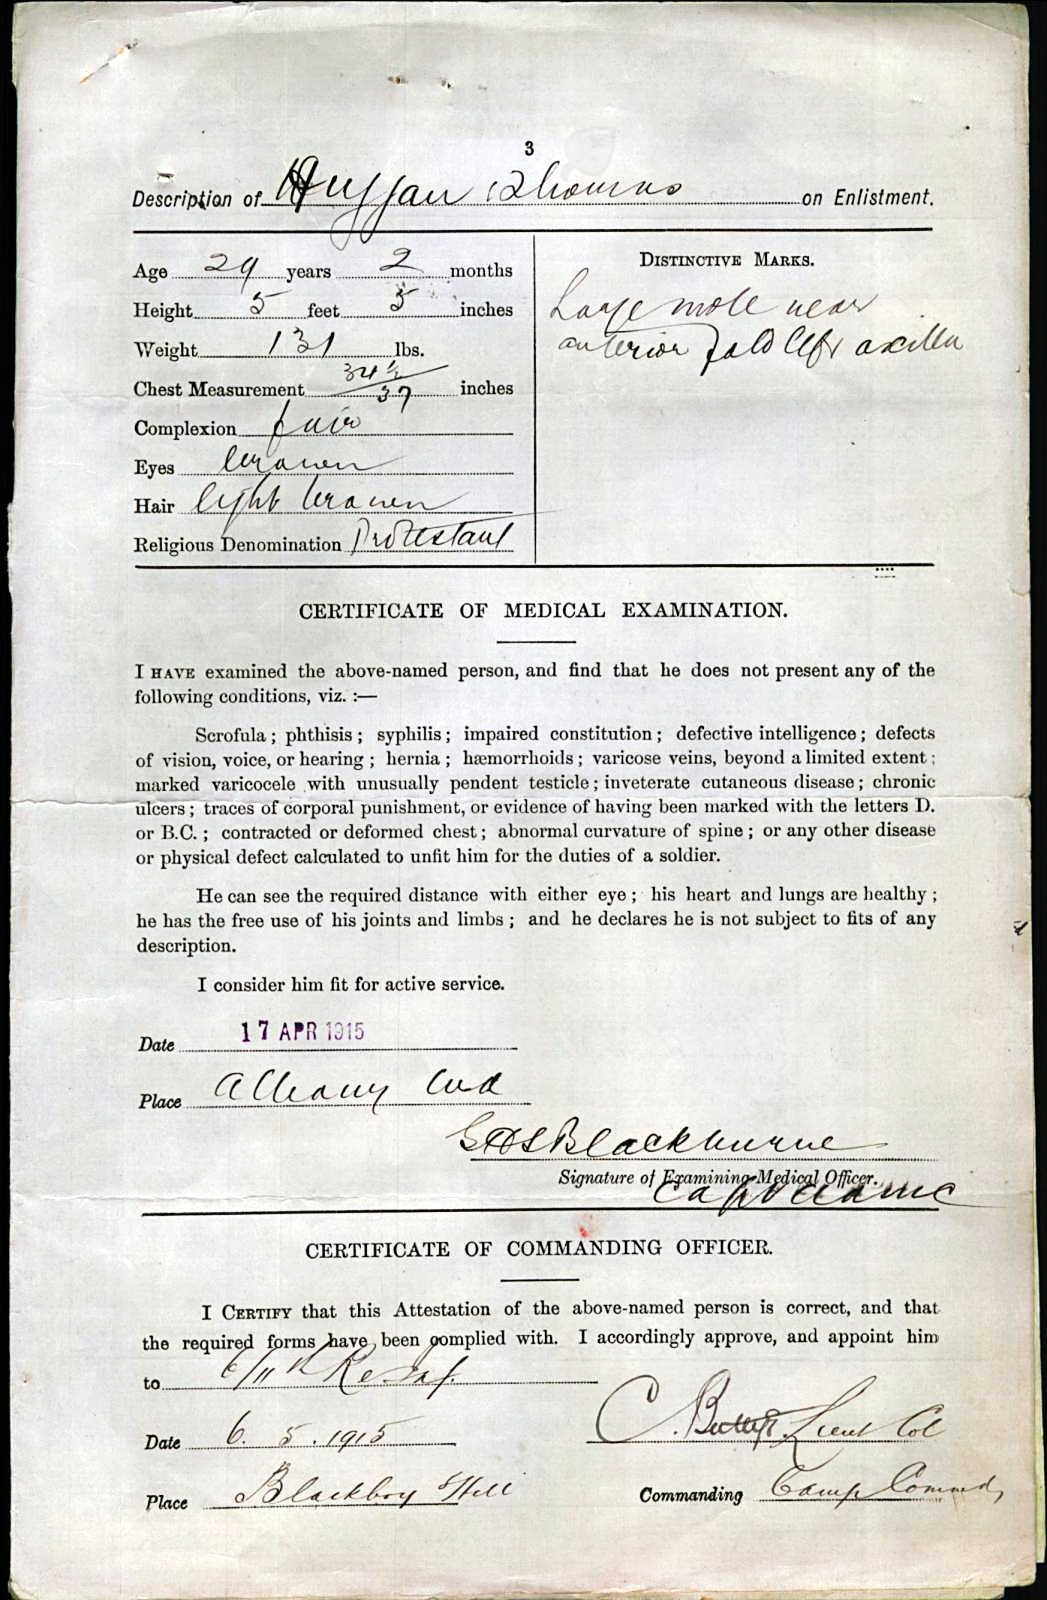 3
Description of Huffan Thomas on Enlistment.
Age 29 years 2 months
Height 5 feet 5 inches
Weight 131 lbs.
Chest Measurement 34½/37 inches
Complexion fair
Eyes brown
Hair light brown
Religious Denomination Protestant
DISTINCTIVE MARKS.
Large mole near
anterior fold left axilla
CERTIFICATE OF MEDICAL EXAMINATION.
I HAVE examined the above-named person, and find that he does not present any of the
following conditions, viz. :—
Scrofula ; phthisis ; syphilis ; impaired constitution ; defective intelligence ; defects
of vision, voice, or hearing ; hernia ; hæmorrhoids ; varicose veins, beyond a limited extent ;
marked varicocele with unusually pendent testicle ; inveterate cutaneous disease ; chronic
ulcers ; traces of corporal punishment, or evidence of having been marked with the letters D.
or B.C. ; contracted or deformed chest ; abnormal curvature of spine ; or any other disease
or physical defect calculated to unfit him for the duties of a soldier.
He can see the required distance with either eye ; his heart and lungs are healthy ;
he has the free use of his joints and limbs ; and he declares he is not subject to fits of any
description.
I consider him fit for active service.
Date 17 APR 1915
Place Albany WA
Blackburne
Signature of Examining Medical Officer.
Capt AAMC
CERTIFICATE OF COMMANDING OFFICER.
I CERTIFY that this Attestation of the above-named person is correct, and that
the required forms have been complied with. I accordingly approve, and appoint him
to 6/11th
Date 6. 5. 1915
C. Lieut Col
Place Blackboy Hill
Commanding Camp Commd,